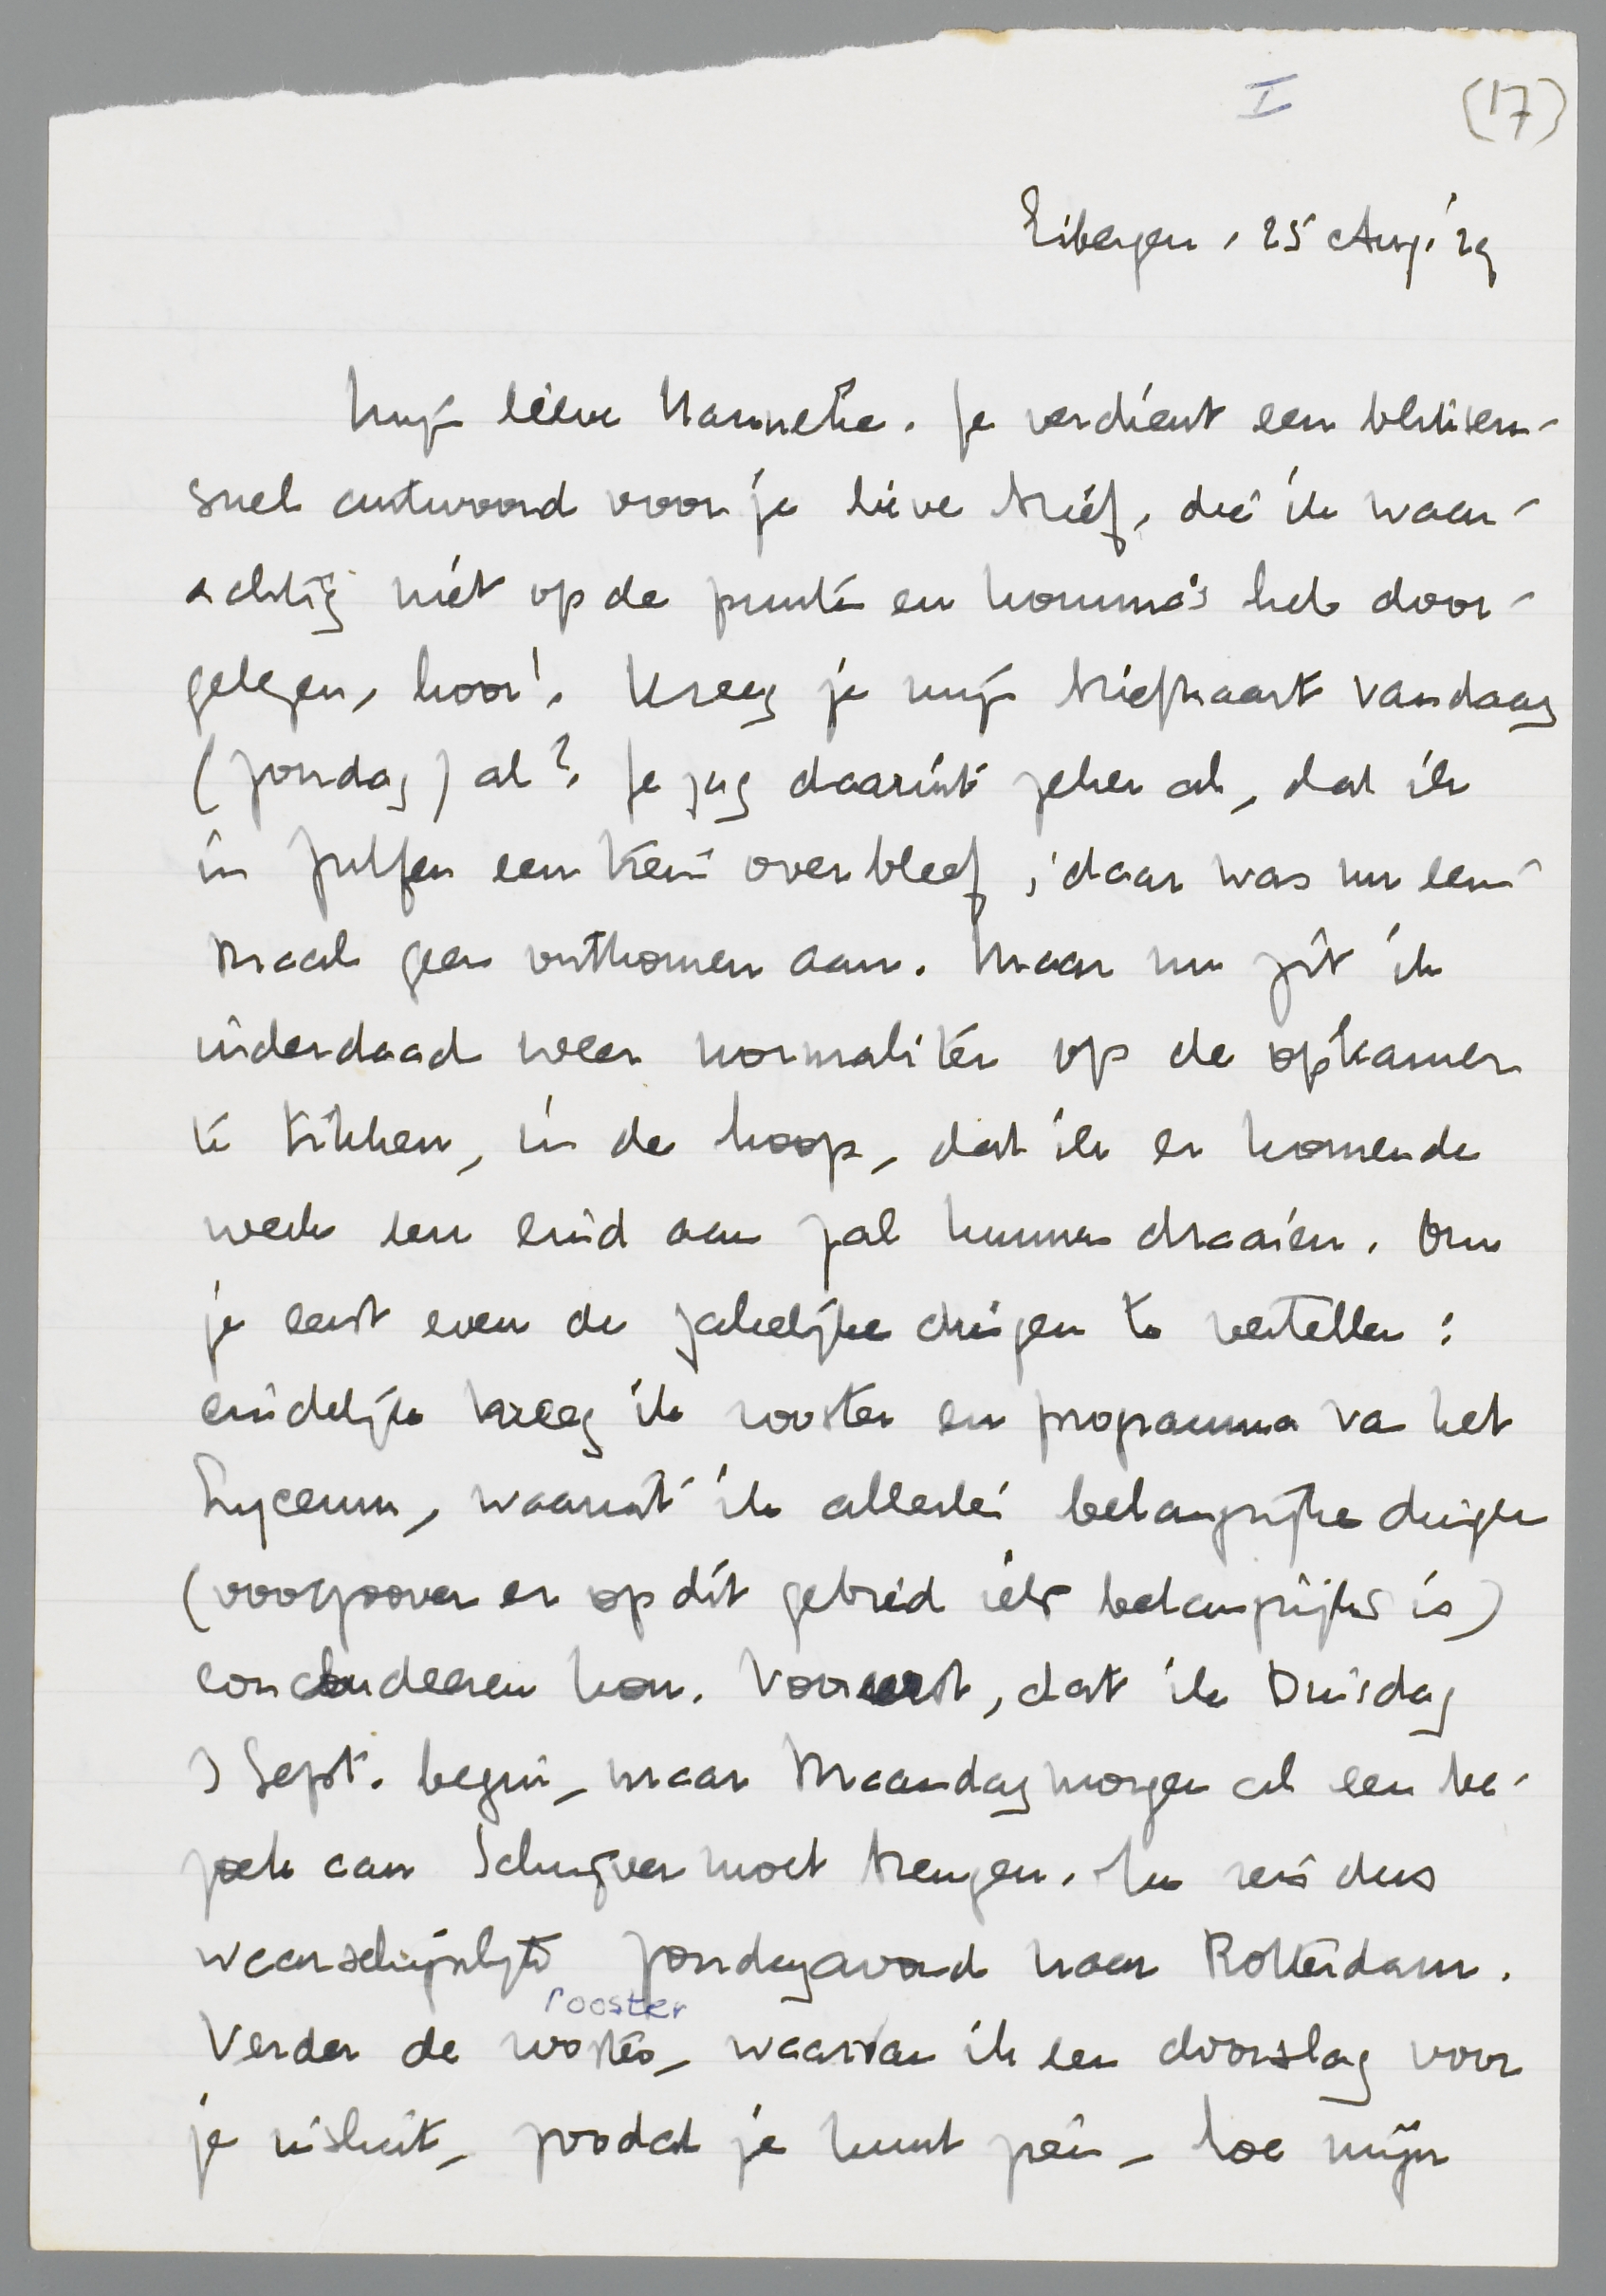 I (17)
Eibergen, 25 Aug. '29
Mijn lieve Hanneke. Je verdient een bliksem-
snel antwoord voor je lieve brief, die ik waar-
achtig niet op de punten en komma's heb door-
gelezen, hoor!. Kreeg je mijn briefkaart vandaag
(Zondag) al?. Je zag daaruit zeker al, dat ik
in Zutfen een trein overbleef; daar was nu een-
maal geen ontkomen aan. Maar nu zit ik
inderdaad weer normaliter op de opkamer
te tikken, in de hoop, dat ik er komende
week een eind aan zal kunnen draaien. Om
je eerst even de zakelijke dingen te vertellen:
eindelijk kreeg ik rooster en programma van het
Lyceum, waaruit ik allerlei belangrijke dingen
(voorzoover er op dit gebied iets belangrijks is)
concludeeren kon. Vooreerst, dat ik Dinsdag
3 Sept. begin, maar Maandagmorgen al een be-
zoek aan moet brengen. Ik reis dus
waarschijnlijk Zondagavond naar Rotterdam.
rooster
Verder de rooster, waarvan ik een doorslag voor
je insluit, zoodat je kunt zien, hoe mijn